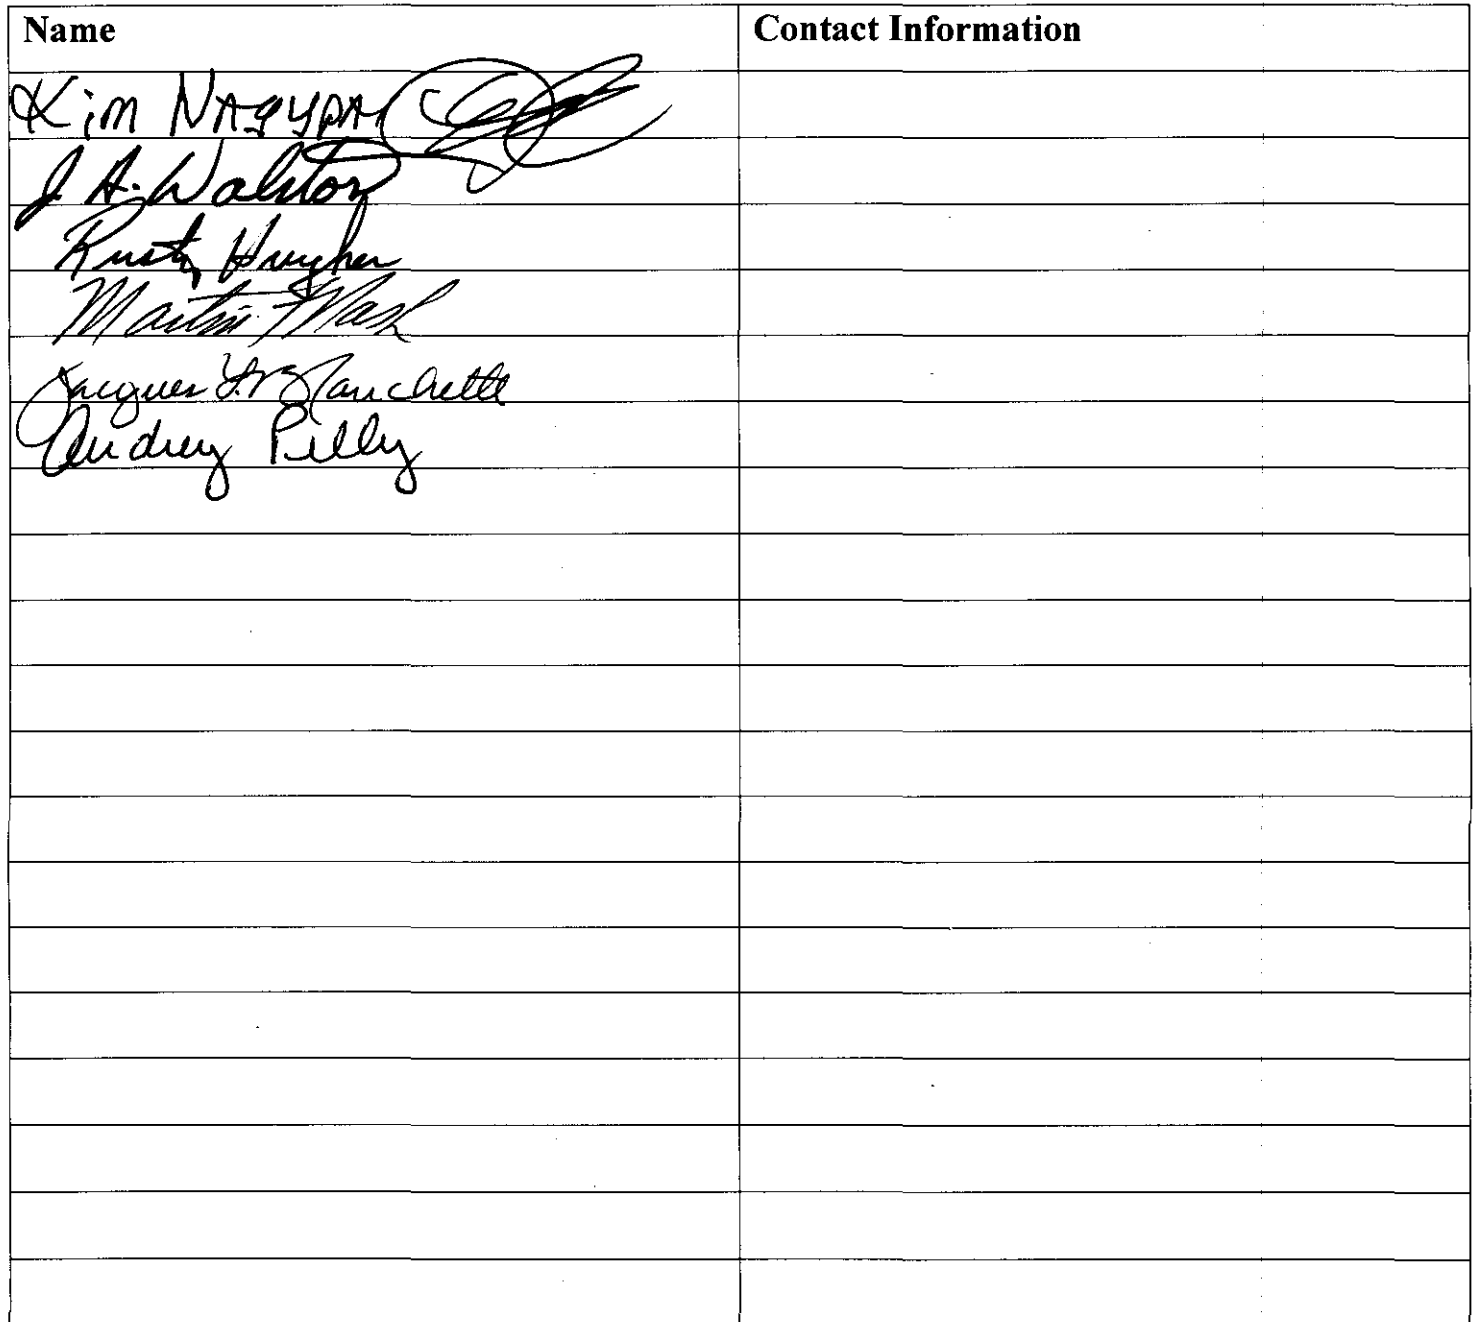 Name Contact Information
Kim NAgypAl
J. A. Walston
Rusty Hughes
Martin Mash
Jacques Y. Blanchette
Audrey Pilly